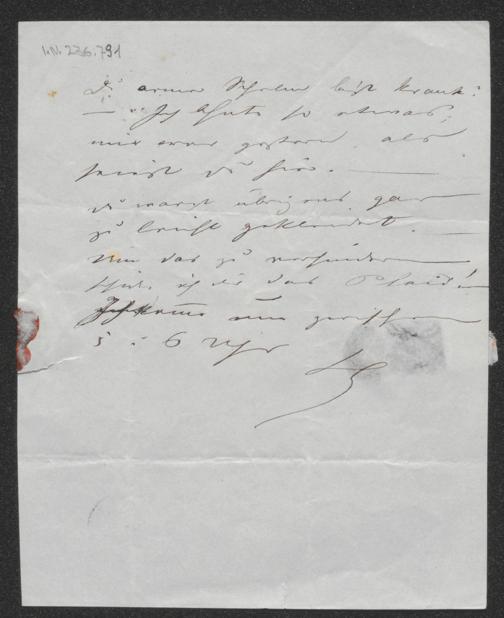 I.N. 236.791
Du armer Schelm bist krank?
— Ich ahnte so etwas,
mir war gestern, als
seiest du hier. —
Du warst übrigens gar
zu leicht gekleidet. —
Um das zu verhindern
schick ich dir das Plaid!
Ich komme nun zwischen
5 – 6 Uhr